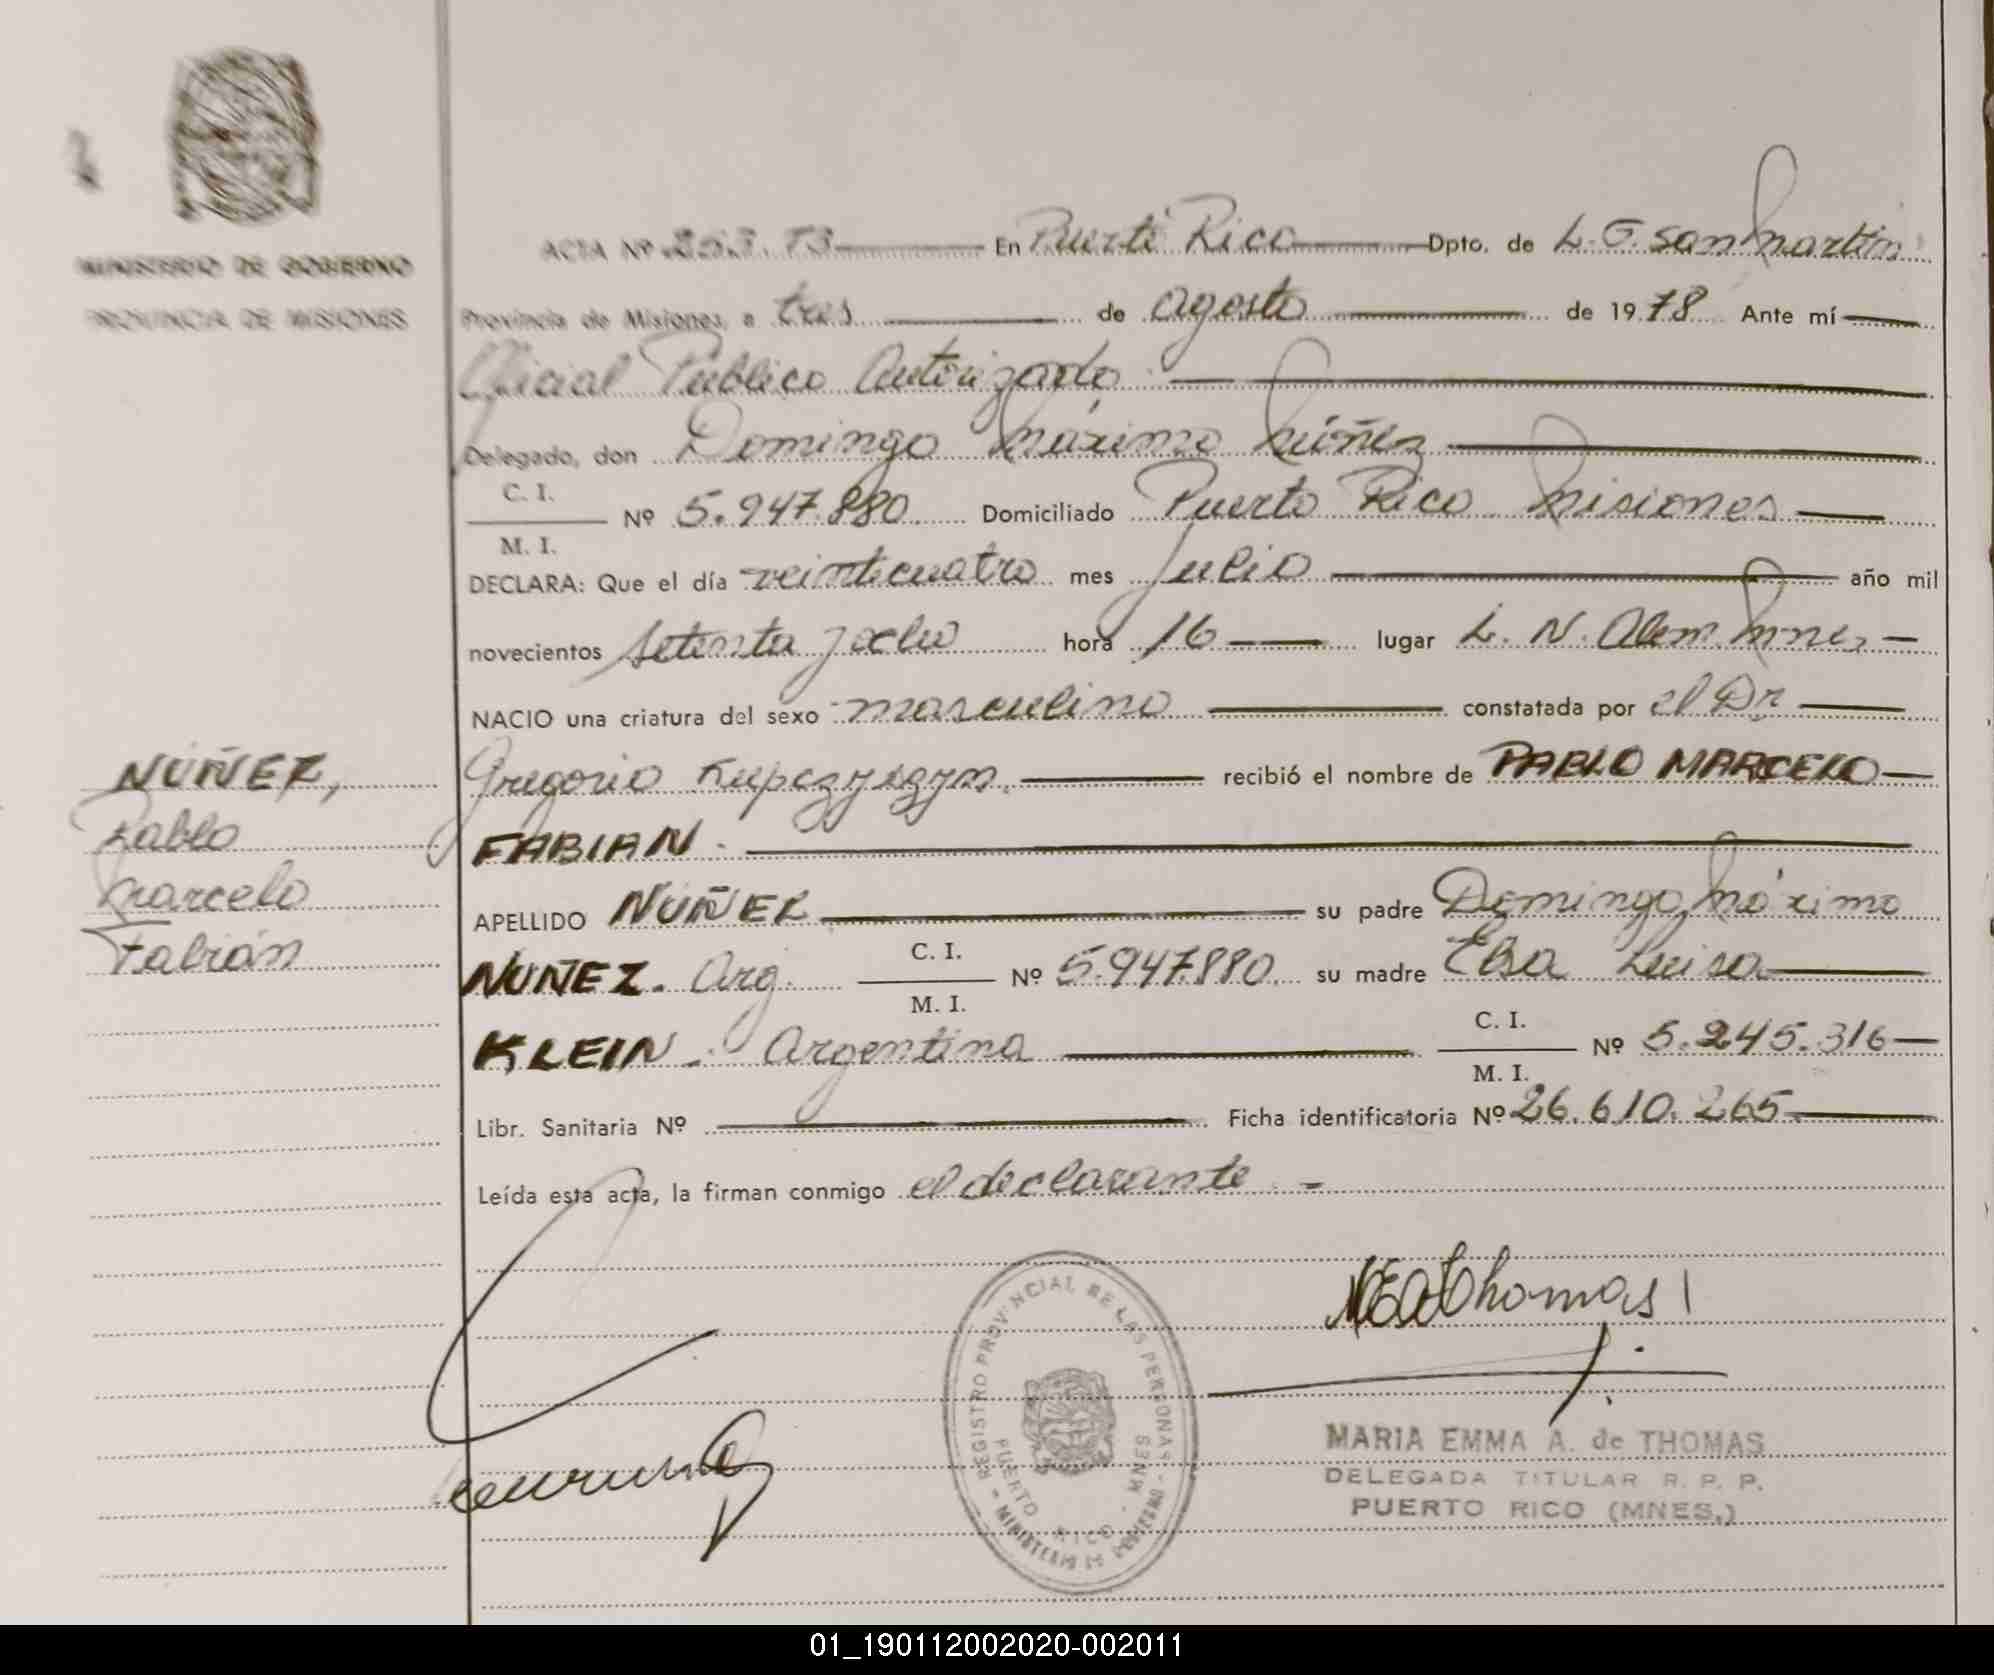 MINISTERIO DE GOBIERNO
PROVINCIA DE MISIONES
ACTA Nº En Puerto Rico Dpto. de L. G. San Martín
Provincia de Misiones, a tres de Agosto de 1978 Ante mí
Oficial Público Autorizado
Delegado, don Domingo Máximo Núñez
C. I.
Nº 5.947.880 Domiciliado Puerto Rico Misiones
M. I.
DECLARA: Que el día veinticuatro mes Julio año mil
novecientos setenta y ocho hora 16 lugar L. N. Alem Mnes,
NACIO una criatura del sexo masculino constatada por el Dr
Gregorio Kupczyszyn. recibió el nombre de PABLO MARCELO
FABIAN.
APELLIDO NUÑEZ su padre Domingo Máximo
NUÑEZ. Arg. C. I. Nº 5.947.880. su madre Elsa Luisa
M. I.
KLEIN. Argentina C. I. Nº 5.245.316
M. I.
Libr. Sanitaria Nº Ficha identificatoria Nº 26.610.265
Leída esta acta, la firman conmigo el declarante
NÚÑEZ,
Pablo
Marcelo
Fabián
MEAdeThomas
REGISTRO PROVINCIAL DE LAS PERSONAS - MINISTERIO DE GOBIERNO -
PUERTO RICO - MNES
MARIA EMMA A. de THOMAS
DELEGADA TITULAR R. P. P.
PUERTO RICO (MNES,)
01_190112002020-002011